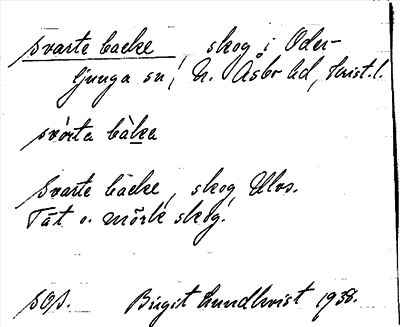 Svarte backe, skog i Oder-
ljunga sn, N. Åsbo hd, Krist. l.
svòrta bàka
Svarte backe, skog,
Tät o. mörk skog.
Birgit Lundkvist 1938.